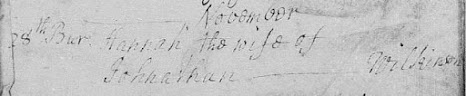 November
28th Bur. Hannah the wife of
Johnathan Wilkinson